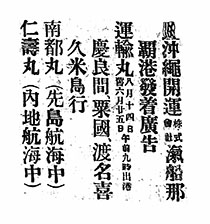 沖繩開運株式會社滊船那
覇港發着廣告
運輸丸八月十四日舊六月廿五日午前九時出港
慶良間、粟國、渡名喜
久米島行
南都丸（先島航海中）
仁壽丸（内地航海中）